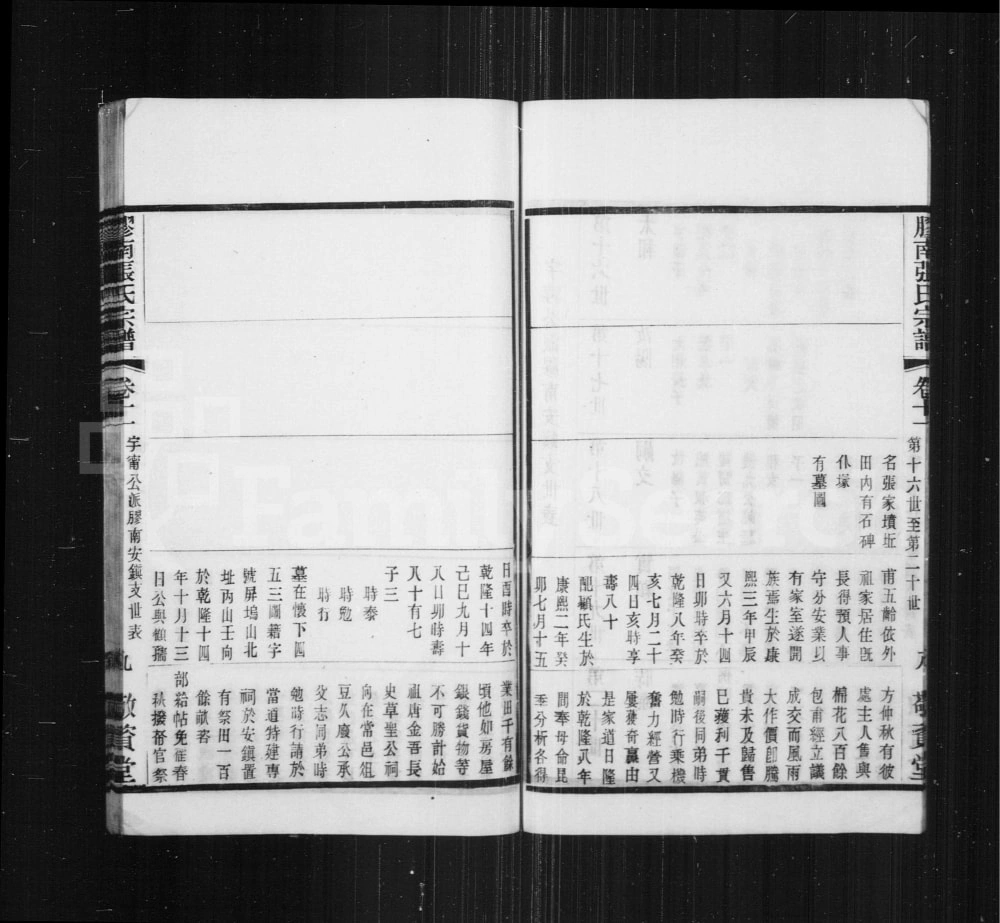 膠南張氏宗譜
卷十一
第十六世至第二十世
敬賓堂
名張家墳坵
田內有石碑
仆塚
有墓圖
甫五齡依外
祖家居住旣
長得預人事
守分安業以
有家室遂開
族焉生於康
熙三年甲辰
又六月十四
日卯時卒於
乾隆八年癸
亥七月二十
四日亥時享
壽八十
配顧氏生於
康熙二年癸
卯七月十五
方伸秋有彼
處主人售與
棉花八百餘
包甫經立議
成交而風雨
大作價卽騰
貴未及歸售
已獲利千貫
嗣後同弟時
勉時行乘機
奮力經營又
屢獲奇贏由
是家道日隆
於乾隆八年
間奉母命昆
季分析各得
日酉時卒於
乾隆十四年
己巳九月十
八日卯時壽
八十有七
子三
時泰
時勉
時行
墓在懷下四
五三圖藉字
號屏塢山北
址丙山壬向
於乾隆十四
年十月十三
日公與嫻孺
業田千有餘
頃他如房屋
銀錢貨物等
不可勝計始
祖唐金吾長
史草聖公祠
向在常邑俎
豆久廢公承
父志同弟時
勉時行請於
當道特建專
祠於安鎭置
有祭田一百
餘畝咨
部給帖免徭春
秋撥帑官祭
膠南張氏宗譜
卷十一
宇甯公派膠南安鎭支世表
九
敬賓堂